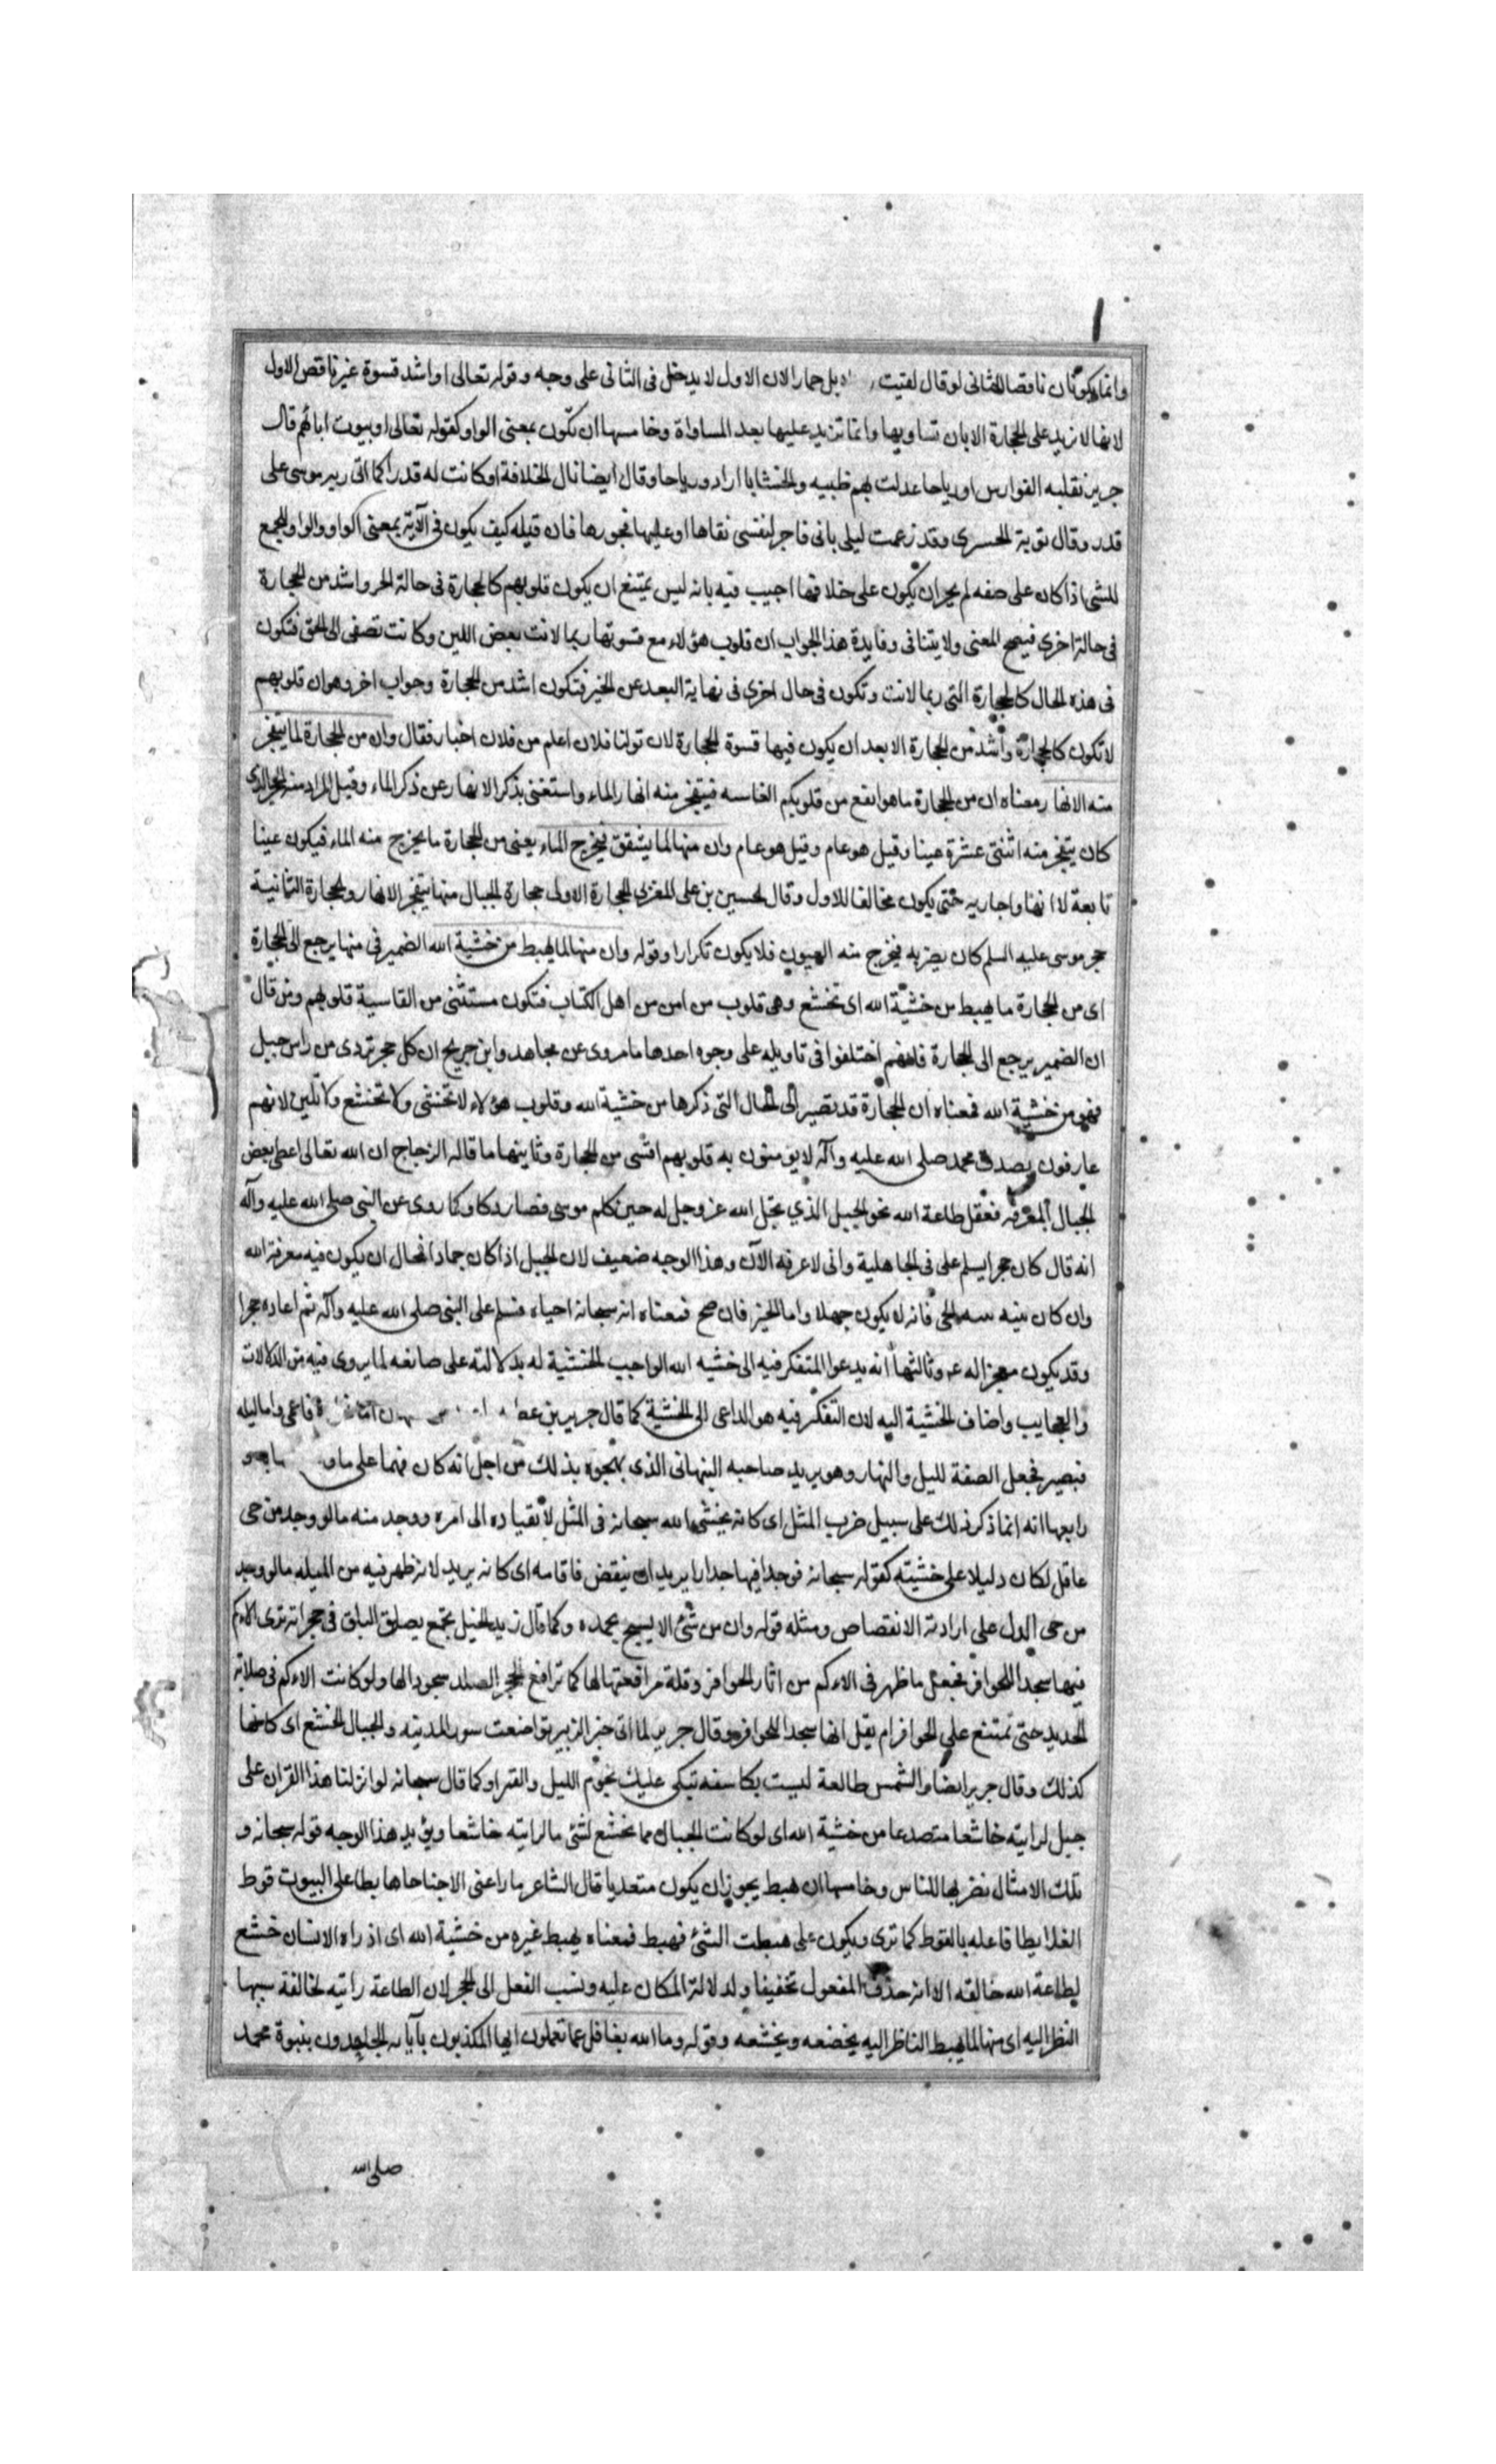 وانما يكون ان ناقضا للثانى لو قال لقيت بل حمارا لان الاول لا يدخل فى الثانى على وجه وقوله تعالى او اشد قسوة غير ناقص للاول
لانها لا تزيد على الحجارة الا بان تساويها وانما تزيد عليها بعد المساواة وخامسها ان تكون بمعنى الواو كقوله تعالى او بيوت ابائهم قال
جرير نقلبه الفوارس او رياحا عدلت بهم طهيه والخشابا اراد ورياحا وقال ايضا نال الخلافة او كانت له قدرا كما اتى ربه موسى على
قدر وقال توبة الحميرى وقد زعمت ليلى بانى فاجر لنفسى تقاها او عليها فجورها فان قيل كيف يكون فى الآية بمعنى الواو والواو للجمع
للشى اذا كان على صفه لم يجز ان يكون على خلافها اجيب فيه بانه ليس يمتنع ان يكون قلوبهم كالحجارة فى حالة اخر واشد من الحجارة
فى حالة اخرى فيصح المعنى ولا يتنافى وفايدة هذا الجواب ان قلوب هؤلاء مع قسوتها ربما لانت بعض اللين وكانت تصغى الى الحق فتكون
فى هذه الحال كالحجارة التى ربما لانت وتكون فى حال اخرى فى نهاية البعد عن الخير فتكون اشد من الحجارة وجواب اخر وهو ان قلوبهم
لا تكون كالحجارة واشد من الحجارة الا بعد ان يكون فيها قسوة الحجارة لان قولنا فلان اعلم من فلان اخبار فقال وان من الحجارة لما يتفجر
منه الانهار معناه ان من الحجارة ما هو انفع من قلوبكم القاسيه فيتفجر منه انهار الماء واستغنى بذكر الانهار عن ذكر الماء وقيل المراد منه الحجر الذى
كان يتفجر منه اثنتى عشرة عينا وقيل هو عام وقيل هو عام وان منها لما يشقق فيخرج الماء يعنى من الحجارة ما يخرج منه الماء فيكون عينا
تابعة لا انهارا جاريه حتى يكون مخالفا للاول وقال الحسين بن على المغربى الحجارة الاولى حجارة الجبال منها يتفجر الانهار والحجارة الثانية
حجر موسى عليه السلم كان يضربه فيخرج منه العيون فلا يكون تكرارا وقوله وان منها لما يهبط من خشية الله الضمير فى منها يرجع الى الحجارة
اى من الحجارة ما يهبط من خشية الله اى تخشع وهى قلوب من امن من اهل الكتاب فتكون مستثنى من القاسية قلوبهم ومن قال
ان الضمير يرجع الى الحجارة فانهم اختلفوا فى تاويله على وجوه احدها ما روى عن مجاهد وابن جريج ان كل حجر تردى من راس جبل
فهو من خشية الله فمعناه ان الحجارة قد تصير الى الحال التى ذكرها من خشية الله وقلوب هؤلاء لا تخشى ولا تخشع ولا تلين لانهم
عارفون بصدق محمد صلى الله عليه وآله لا يؤمنون به قلوبهم اقسى من الحجارة وثانيها ما قاله الزجاج ان الله تعالى اعطى بعض
الجبال المعرفه فعقل طاعة الله نحو الجبل الذي تجلى الله عز وجل له حين كلم موسى فصار دكا وكما روى عن النبى صلى الله عليه وآله
انه قال كان حجر ايسلم على فى الجاهلية وانى لاعرفه الآن وهذا الوجه ضعيف لان الجبل اذا كان جمادا فمحال ان يكون فيه معرفة الله
وان كان بنيه بنيه الحى فانه لا يكون جبلا واما الخبر فان صح فمعناه انه سبحانه احياه فسلم على النبى صلى الله عليه وآله ثم اعاده حجرا
وقد يكون معجزا له وثالثها انه يدعوا المتفكر فيه الى خشيه الله الواجب الخشية له بدلالته على صانعه لما يروى فيه من الدلالات
والعجايب واضاف الخشية اليه لان التفكر فيه هو الداعى الى الخشية كما قال جرير بن عط فاعمى واما ليله
فبصير فجعل الصفة لليل والنهار وهو يريد صاحبه النبهانى الذى يهجوه بذلك من اجل انه كان فيهما على ما
رابعها انه انما ذكر ذلك على سبيل ضرب المثل اى كانه يخشى الله سبحانه فى المثل لانقياده الى امره ووجد منه ما لو وجد من حى
عاقل لكان دليلا على خشيته كقوله سبحانه فوجدا فيها جدارا يريد ان ينقض فاقامه اى كانه يريد لانه ظهر فيه من الميل ما لو وجد
من حى لدل على ارادته الانقضاض ومثله قوله وان من شئ الا يسبح بحمده وكما قال زيد الخيل بجمع يضل البلق فى حجراته ترى الاكم
فيها سجدا للحوافر فجعل ما ظهر فى الاكم من اثار الحوافر وقلة مدافعتها لها كما تدافع الحجر الصلد سجودا لها ولو كانت الاكم فى صلابة
الحديد حتى تمتنع على الحوافر لم يقل انها سجدا للحوافر وقال جرير لما اتى خبر الزبير تواضعت سور المدينه والجبال الخشع اى كانها
كذلك وقال جرير ايضا والشمس طالعة ليست بكاسفه تبكى عليك نجوم الليل والقمرا وكما قال سبحانه لو انزلنا هذا القران على
جبل لرايته خاشعا متصدعا من خشية الله اى لو كانت الجبال مما تخشع لشئ ما لرايته خاشعا ويؤيد هذا الوجه قوله سبحانه و
تلك الامثال نضربها للناس وخامسها ان هبط يجوز ان يكون متعديا قال الشاعر ما راعنى الا جناحا هابطا على البيوت قوط
العلابطا فاعمله بالقوط كما ترى ويكون على هبطت الشئ فهبط فمعناه يهبط غيره من خشية الله اى اذ راه الانسان خشع
لطاعة الله خالقه الا انه حذف المفعول تخفيفا ولدلالة المكان عليه ونسب الفعل الى الحجر لان الطاعة راتيه لخالقه سببها
النظر اليه اى منها لما يهبط الناظر اليه يخضعه ويخشعه وقوله وما الله بغافل عما تعملون ايها المكذبون بآياته الجاحدون بنبوة محمد
صلى الله